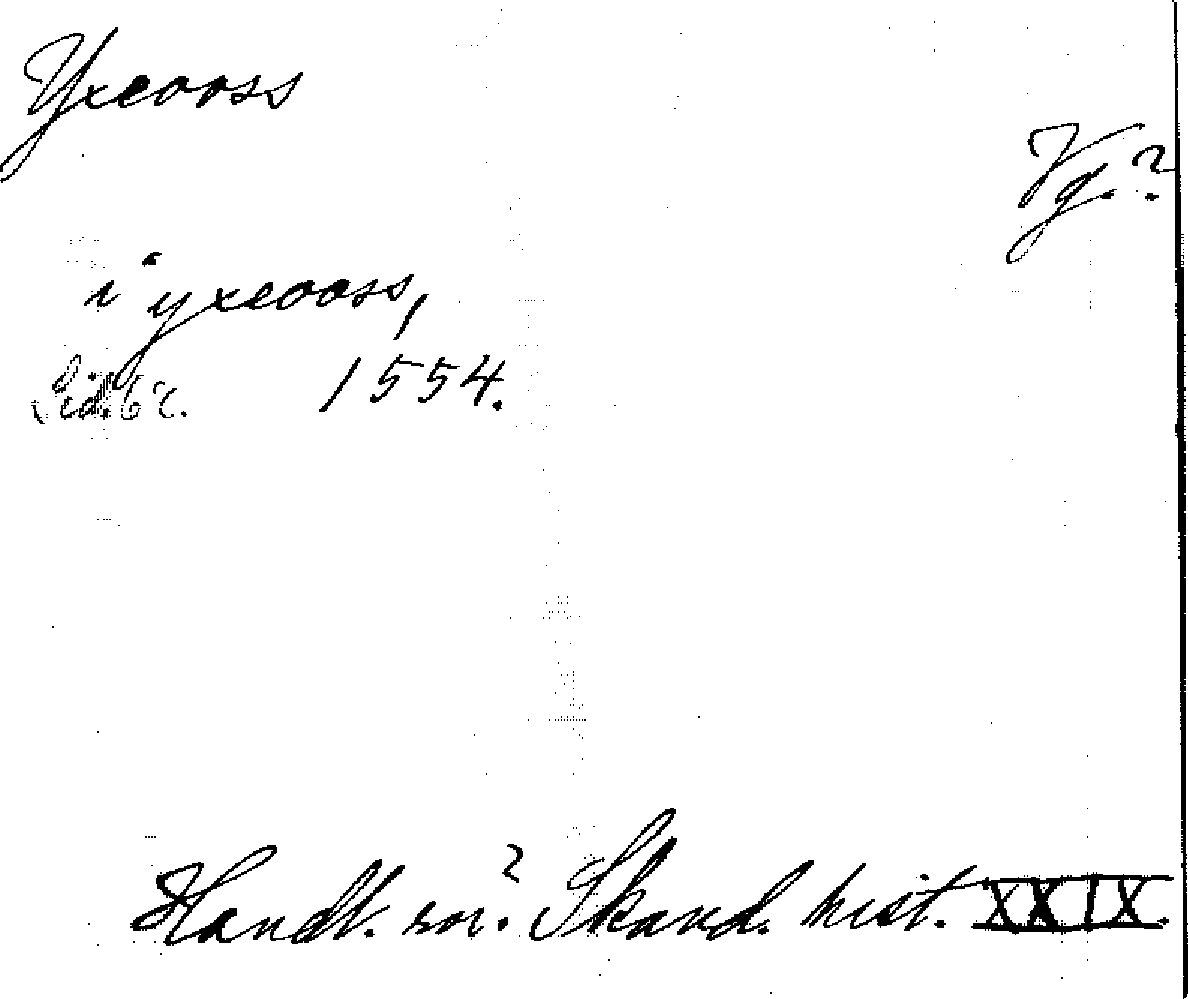 Yxeooss
Vg.?
i yxeooss,
Sid. 62. 1554.
Handl. rör. Skand. hist. XXIX.